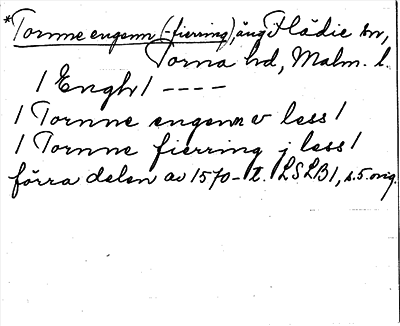 *Tornne engenn (-fierring), äng i Flädie sn,
Torna hd, Malm. l.
/ Engh / ----
/ Tornne engenn v less /
/ Tornne fierring j less /
förra delen av 1570-t. LSLB 1, s. 5. orig.